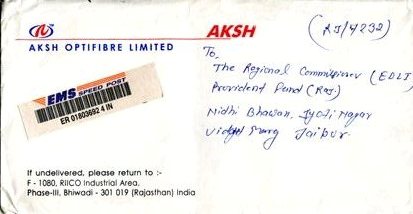 AKSH
AKSH OPTIFIBRE LIMITED
(RJ/4232)
To,
The Regional Commissioner (EDLI)
Provident Fund (Raj.)
Nidhi Bhawan, Jyoti Nagar
Vidyut Marg Jaipur
EMS SPEED POST
ER 01803692 4 IN
If undelivered, please return to :-
F - 1080, RIICO Industrial Area,
Phase-III, Bhiwadi - 301 019 (Rajasthan) India